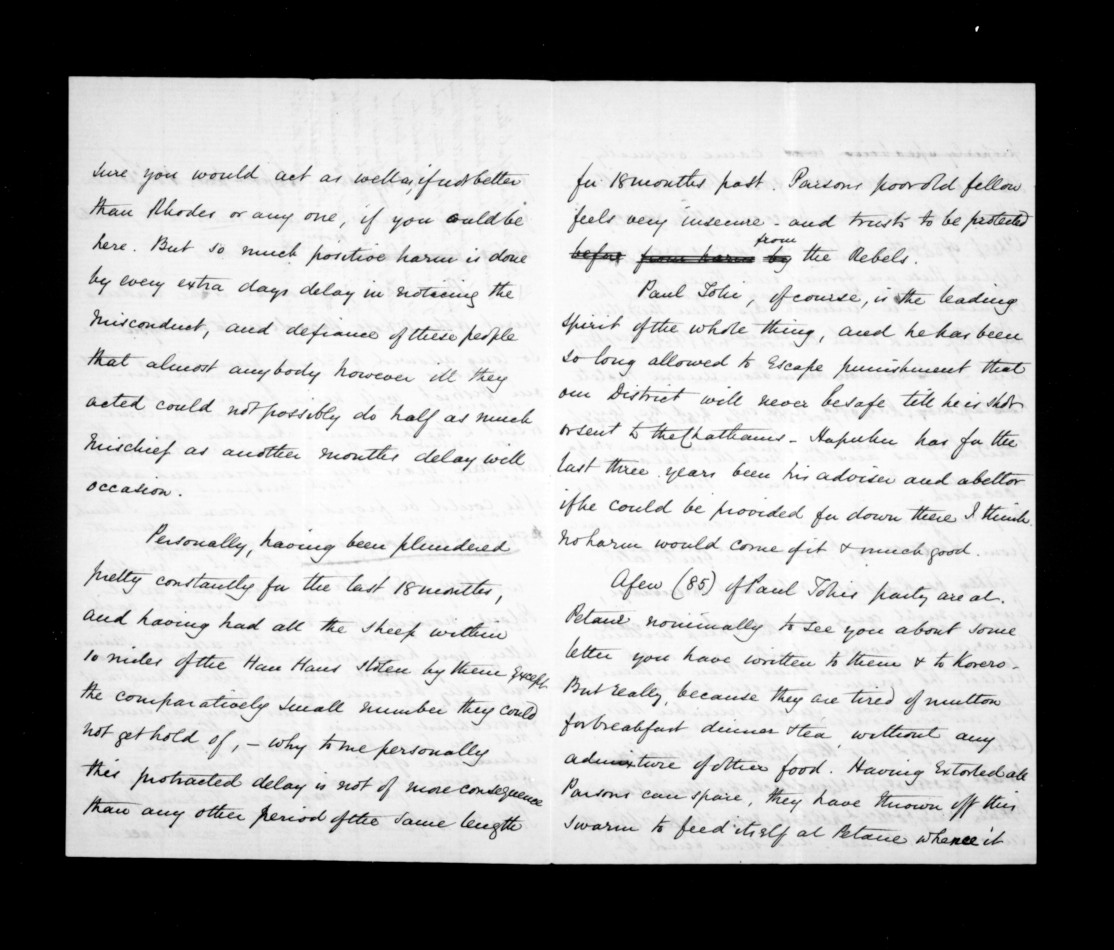 sure you would act as well as, if not better
than Rhodes or any one, if you could be
here. But so much positive harm is done
by every extra days delay in noticing the
misconduct, and defiance of these people
that almost anybody however ill they
acted could not possibly do half as much
mischief as another months delay will
occasion.
Personally, having been plundered
pretty constantly for the last 18 months,
and having had all the sheep within
10 miles of the Hau Haus stolen by them except
the comparatively small number they could
not get hold of, – why to me personally
this protracted delay is not of more consequence
than any other period of the same length
for 18 months past. Parsons poor old fellow
feels very insecure – and trusts to be protected
before from harm by from the Rebels.
Paul Tohi, of course, is the leading
spirit of the whole thing, and he has been
so long allowed to escape punishment that
our District will never be safe till he is shot
or sent to the Chathams – Hapuku has for the
last three years been his adviser and abettor
if he could be provided for down there I think
no harm would come of it & much good.
A few (85) of Paul Tohis party are at
Petane nominally to see you about some
letter you have written to them & to korero –
But really, because they are tired of mutton
for breakfast dinner & tea without any
admixture of other food. Having extorted all
Parsons can spare, they have thrown off this
swarm to feed itself at Petane whence it